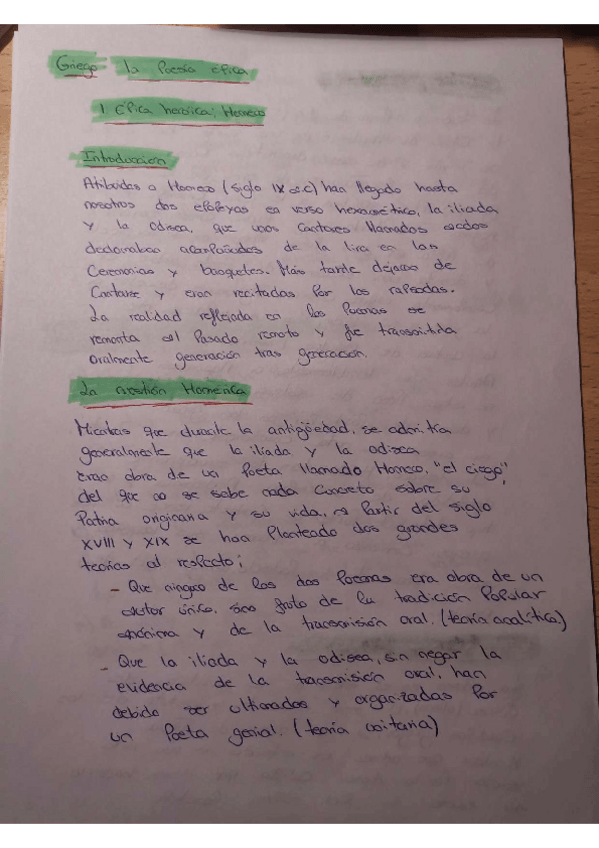 Griego: la Poesía épica
1. Épica heroica: Homero
Introducción
Atribuidas a Homero (siglo IX a.c) han llegado hasta
nosotros dos epopeyas en verso hexamétrico, la iliada
y la odisea, que unos cantores llamados aedos
declamaban acompañados de la lira en las
Ceremonias y banquetes. Más tarde dejaron de
Cantarse y eran recitadas por los rapsodas.
La realidad reflejada en los Poemas se
remonta al Pasado remoto y fue transmitida
oralmente generación tras generación.
La cuestión Homérica
Mientras que durante la antigüedad, se admitía
generalmente que la iliada y la odisea
eran obra de un Poeta llamado Homero, "el ciego",
del que no se sabe nada concreto sobre su
Patria originaria y su vida, a Partir del siglo
XVIII y XIX se han Planteado dos grandes
teorías al respecto;
- Que ninguno de los dos Poemas era obra de un
autor único, sino fruto de la tradición Popular
anónima y de la transmisión oral. (teoría analítica)
- Que la iliada y la odisea, sin negar la
evidencia de la transmisión oral, han
debido ser ultimados y organizadas Por
un Poeta genial. (teoría unitaria)